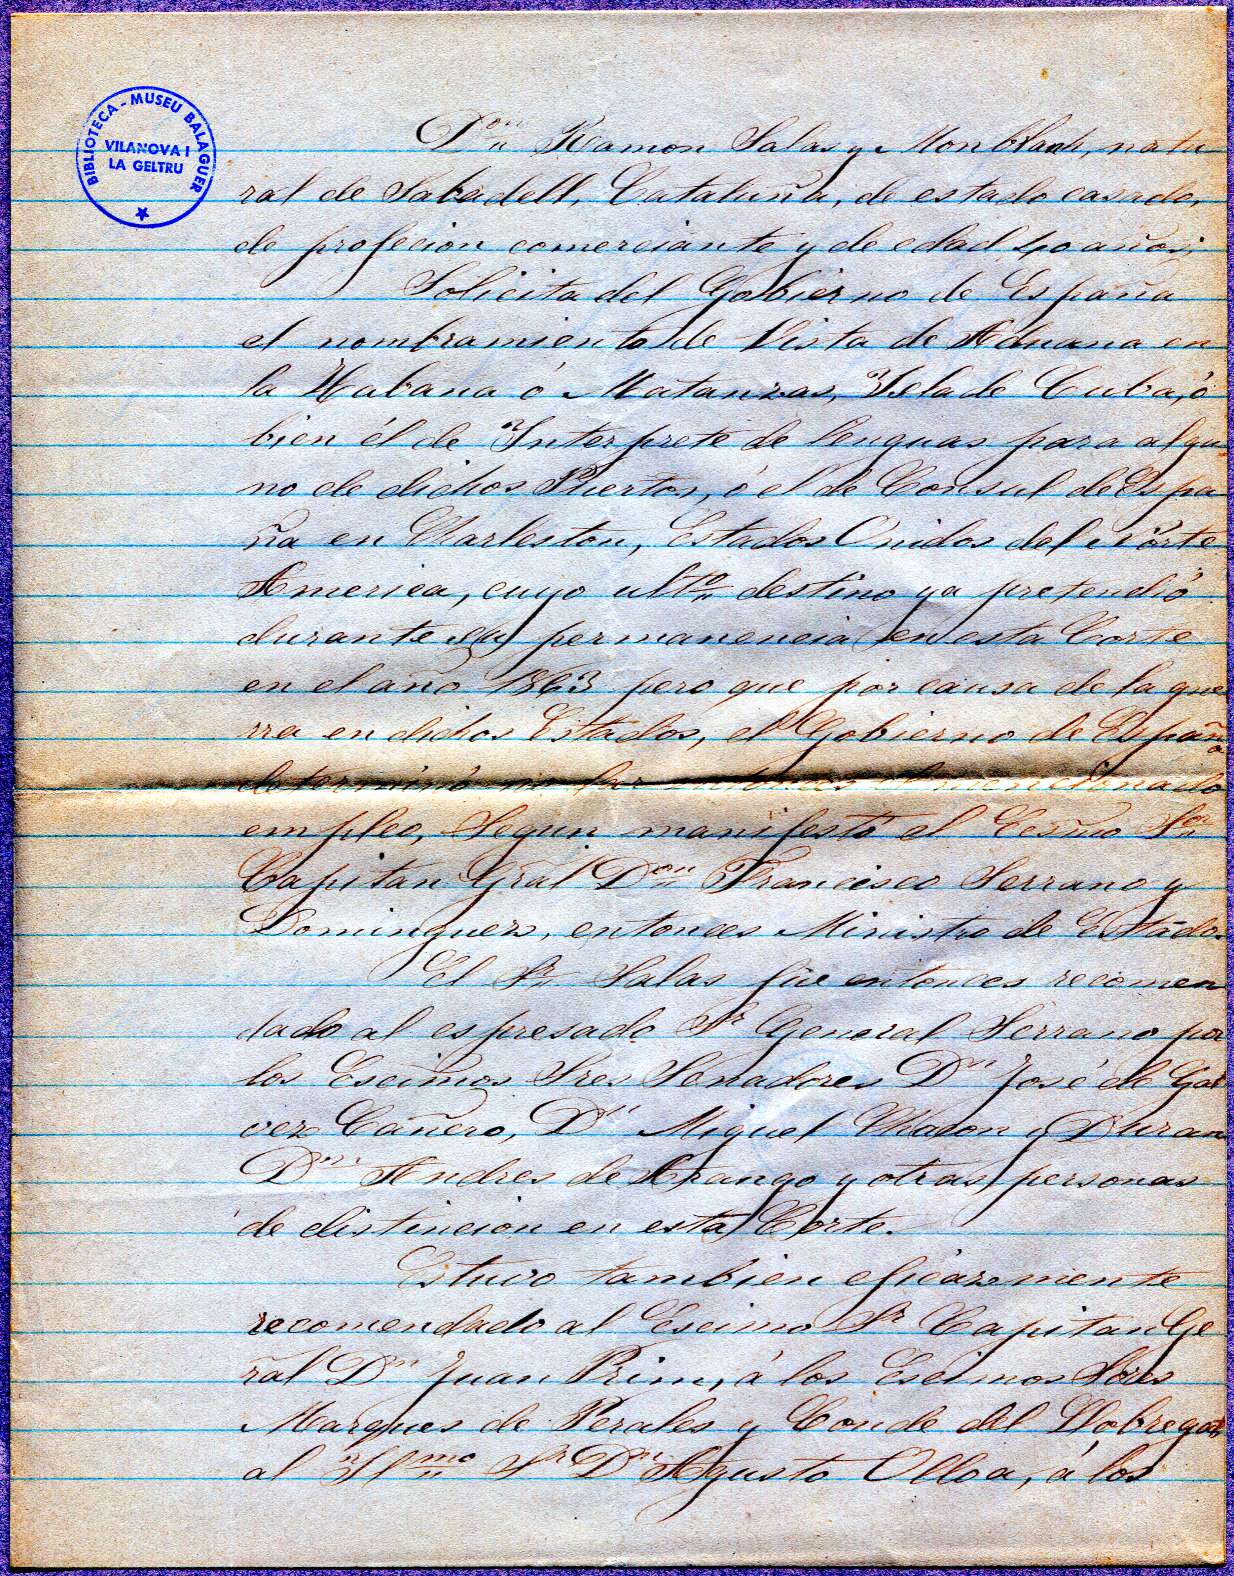 BIBLIOTECA - MUSEU BALAGUER
VILANOVA I
LA GELTRU
Dⁿ Ramon Salas y Monblach, natu
ral de Sabadell, Cataluña, de estado casado,
de profecion comerciante y de edad 40 años;
Solicita del Gobierno de España
el nombramiento de Vista de Aduana en
la Habana ó Matanzas, Isla de Cuba, ó
bien él de Interprete de lenguas para algu
no de dichos Puertos, ó el de Consul de Espa
ña en Charleston, Estados Unidos del Norte
America, cuyo ultº destino ya pretendió
durante su permanencia en esta Corte
en el año 1863 pero que por causa de la gue
rra en dichos Estados, el Gobierno de España
determinó no dar entonces el mencionado
empleo, Segun manifestó el Escmo Sor
Capitan Gral Don Francisco Serrano y
Dominguez, entonces Ministro de Estado.
El Sr Salas fue entonces recomen
dado al espresado Sr General Serrano por
los Escimos Sres Senadores Dn José de Gal
vez Cañero, Dn Miguel Chacon y Duran
Dn Andres de Arango y otras personas
de distincion en esta Corte.
Estuvo tambien eficazmente
recomendado al Escimo Sr Capitan Ge
ral Dn Juan Prim, á los Escimos Sres
Marques de Perales y Conde del Llobregat,
al Ilmo Sr Dn Agusto Ulloa, á los